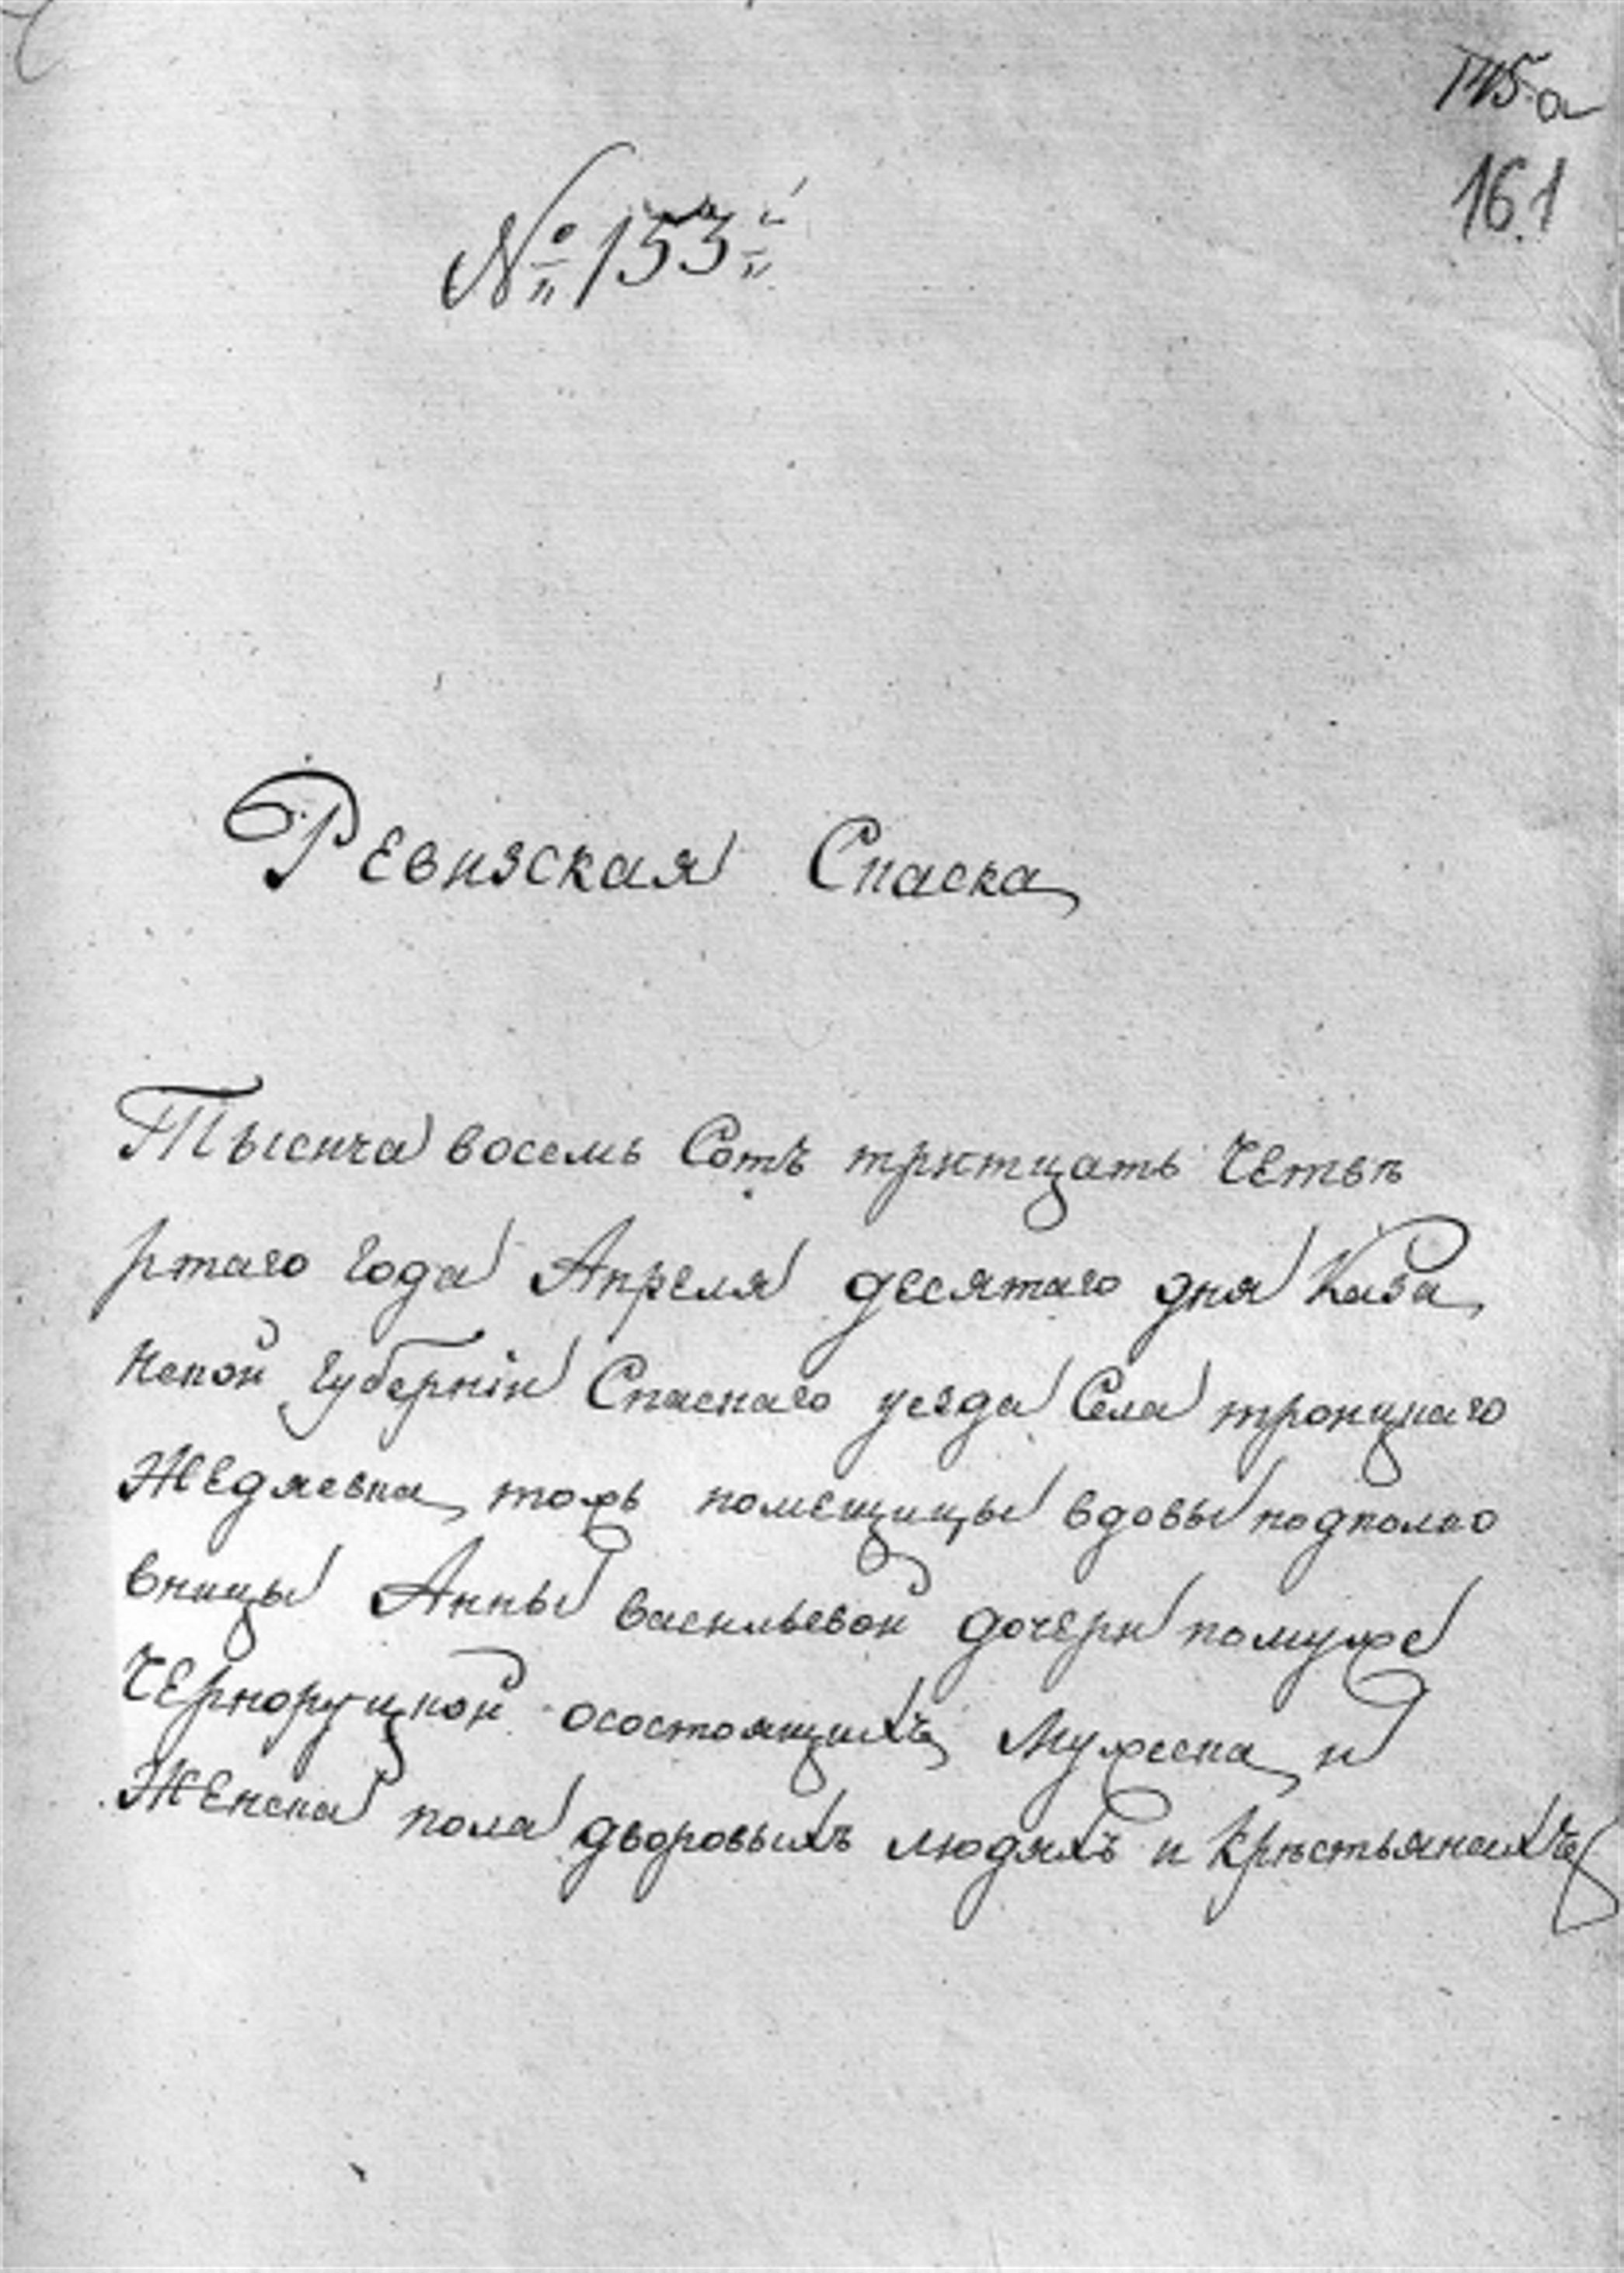 161
№ 153й
Ревизская Спаска
Тысича восемь Сотъ тритцать Четъв
ртаго года Апреля десятаго дня Каза
нской губернiи Спаскаго уезда Села троицкаго
Жедяевка тожъ помещицы вдовы подполко
вницы Анны васильевой дочери помуже
Черноруцкой осостоящихъ Мужеска и
Женска пола дворовыхъ людяхъ и крестьянехъ